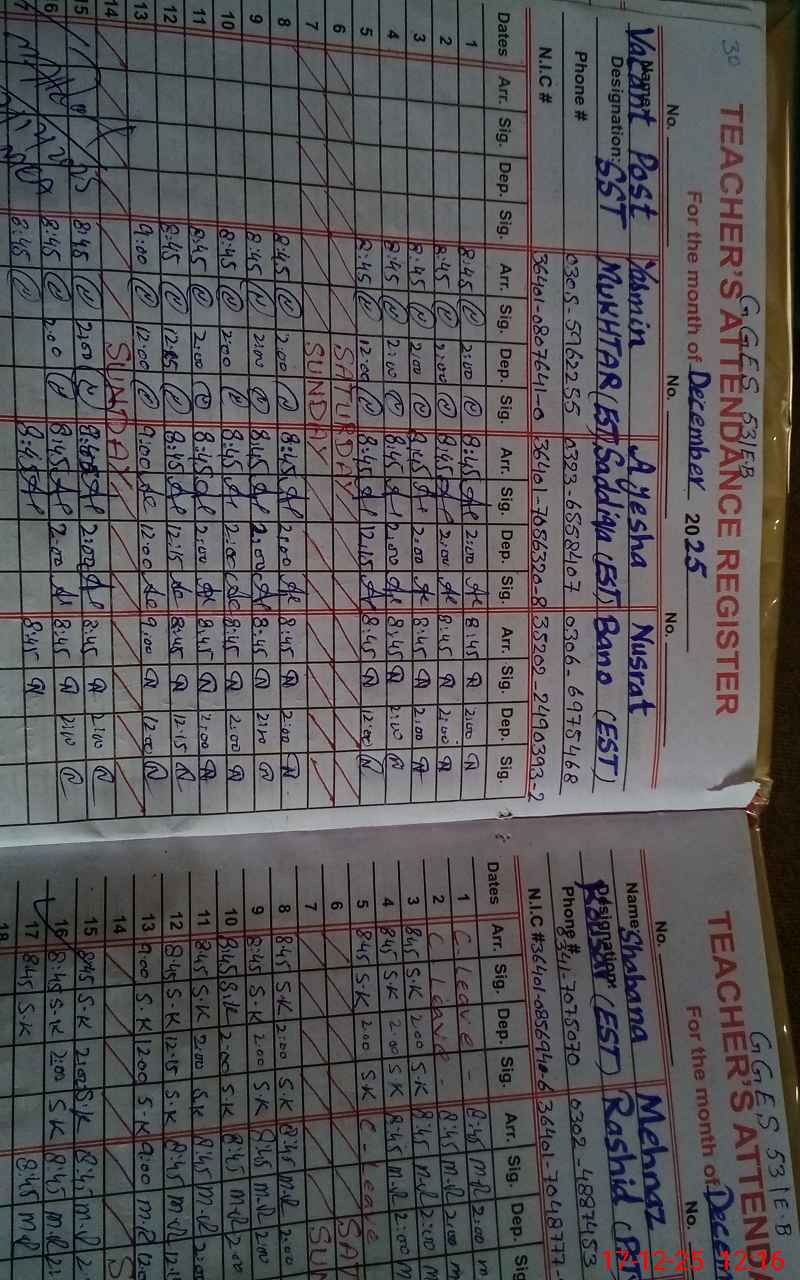 30
G GES 531E-B
TEACHER'S ATTENDANCE REGISTER
For the month of December 2025
No. No. No.
Name: Vacant Post Yasmin Ayesha Nusrat
Designation: SST MUKHTAR (EST) Saddiqa (EST) Bano (EST)
Phone # 0305-5962255 0323-6558407 0306-6975468
N.I.C # 36401-0807641-0 36401-7086320-8 35202-2490393-2
Dates Arr. Sig. Dep. Sig. Arr. Sig. Dep. Sig. Arr. Sig. Dep. Sig. Arr. Sig. Dep. Sig.
1 8:45 2:00 8:45 2:00 8:45 2:00
2 8:45 2:00 8:45 2:00 8:45 2:00
3 8:45 2:00 8:45 2:00 8:45 2:00
4 8:45 2:00 8:45 2:00 8:45 2:00
5 8:45 12:00 8:45 12:15 8:45 12:00
6 SATURDAY
7 SUNDAY
8 8:45 2:00 8:45 2:00 8:45 2:00
9 8:45 2:00 8:45 2:00 8:45 2:00
10 8:45 2:00 8:45 2:00 8:45 2:00
11 8:45 2:00 8:45 2:00 8:45 2:00
12 8:45 12:15 8:45 12:15 8:45 12:15
13 9:00 12:00 9:00 12:00 9:00 12:00
14 SUNDAY
15 8:45 2:00 8:45 2:00 8:45
16 8:45 2:00 8:45 2:00 8:45
8:45 8:45 8:45
G GES 531E-B
TEACHER'S ATTEND
For the month of Dece
No. No.
Name: Shabana Mehnaz
Designation: (EST) Rashid
Phone # 0341-7075070 0302-4887453
N.I.C # 36401-0856940-6 36401-7048777-
Dates Arr. Sig. Dep. Sig. Arr. Sig. Dep. Sig
1 C. Leave - 8:45 M.R 2:00 m
2 C Leave - 8:45 M.R 2:00 m
3 8:45 S.K 2:00 S.K 8:45 M.R 2:00 m
4 8:45 S.K 2:00 S.K 8:45 M.R 2:00 m
5 8:45 S.K 2:00 S.K C- Leave
6 SAT
7 SUN
8 8:45 S.K 2:00 S.K 8:45 M.R 2:00
9 8:45 S.K 2:00 S.K 8:45 M.R 2:00
10 8:45 S.K 2:00 S.K 8:45 M.R 2:00
11 8:45 S.K 2:00 S.K 8:45 M.R 2:00
12 8:45 S.K 12:15 S.K 8:45 M.R 12:1
13 9:00 S.K 12:00 S.K 9:00 M.R 12:0
14 S
15 8:45 S.K 2:00 S.K 8:45 M.R 2:
16 8:45 S.K 2:00 S.K 8:45 M.R 2:
17 8:45 S.K 8:45 M.R
18
17-12-25 12:16